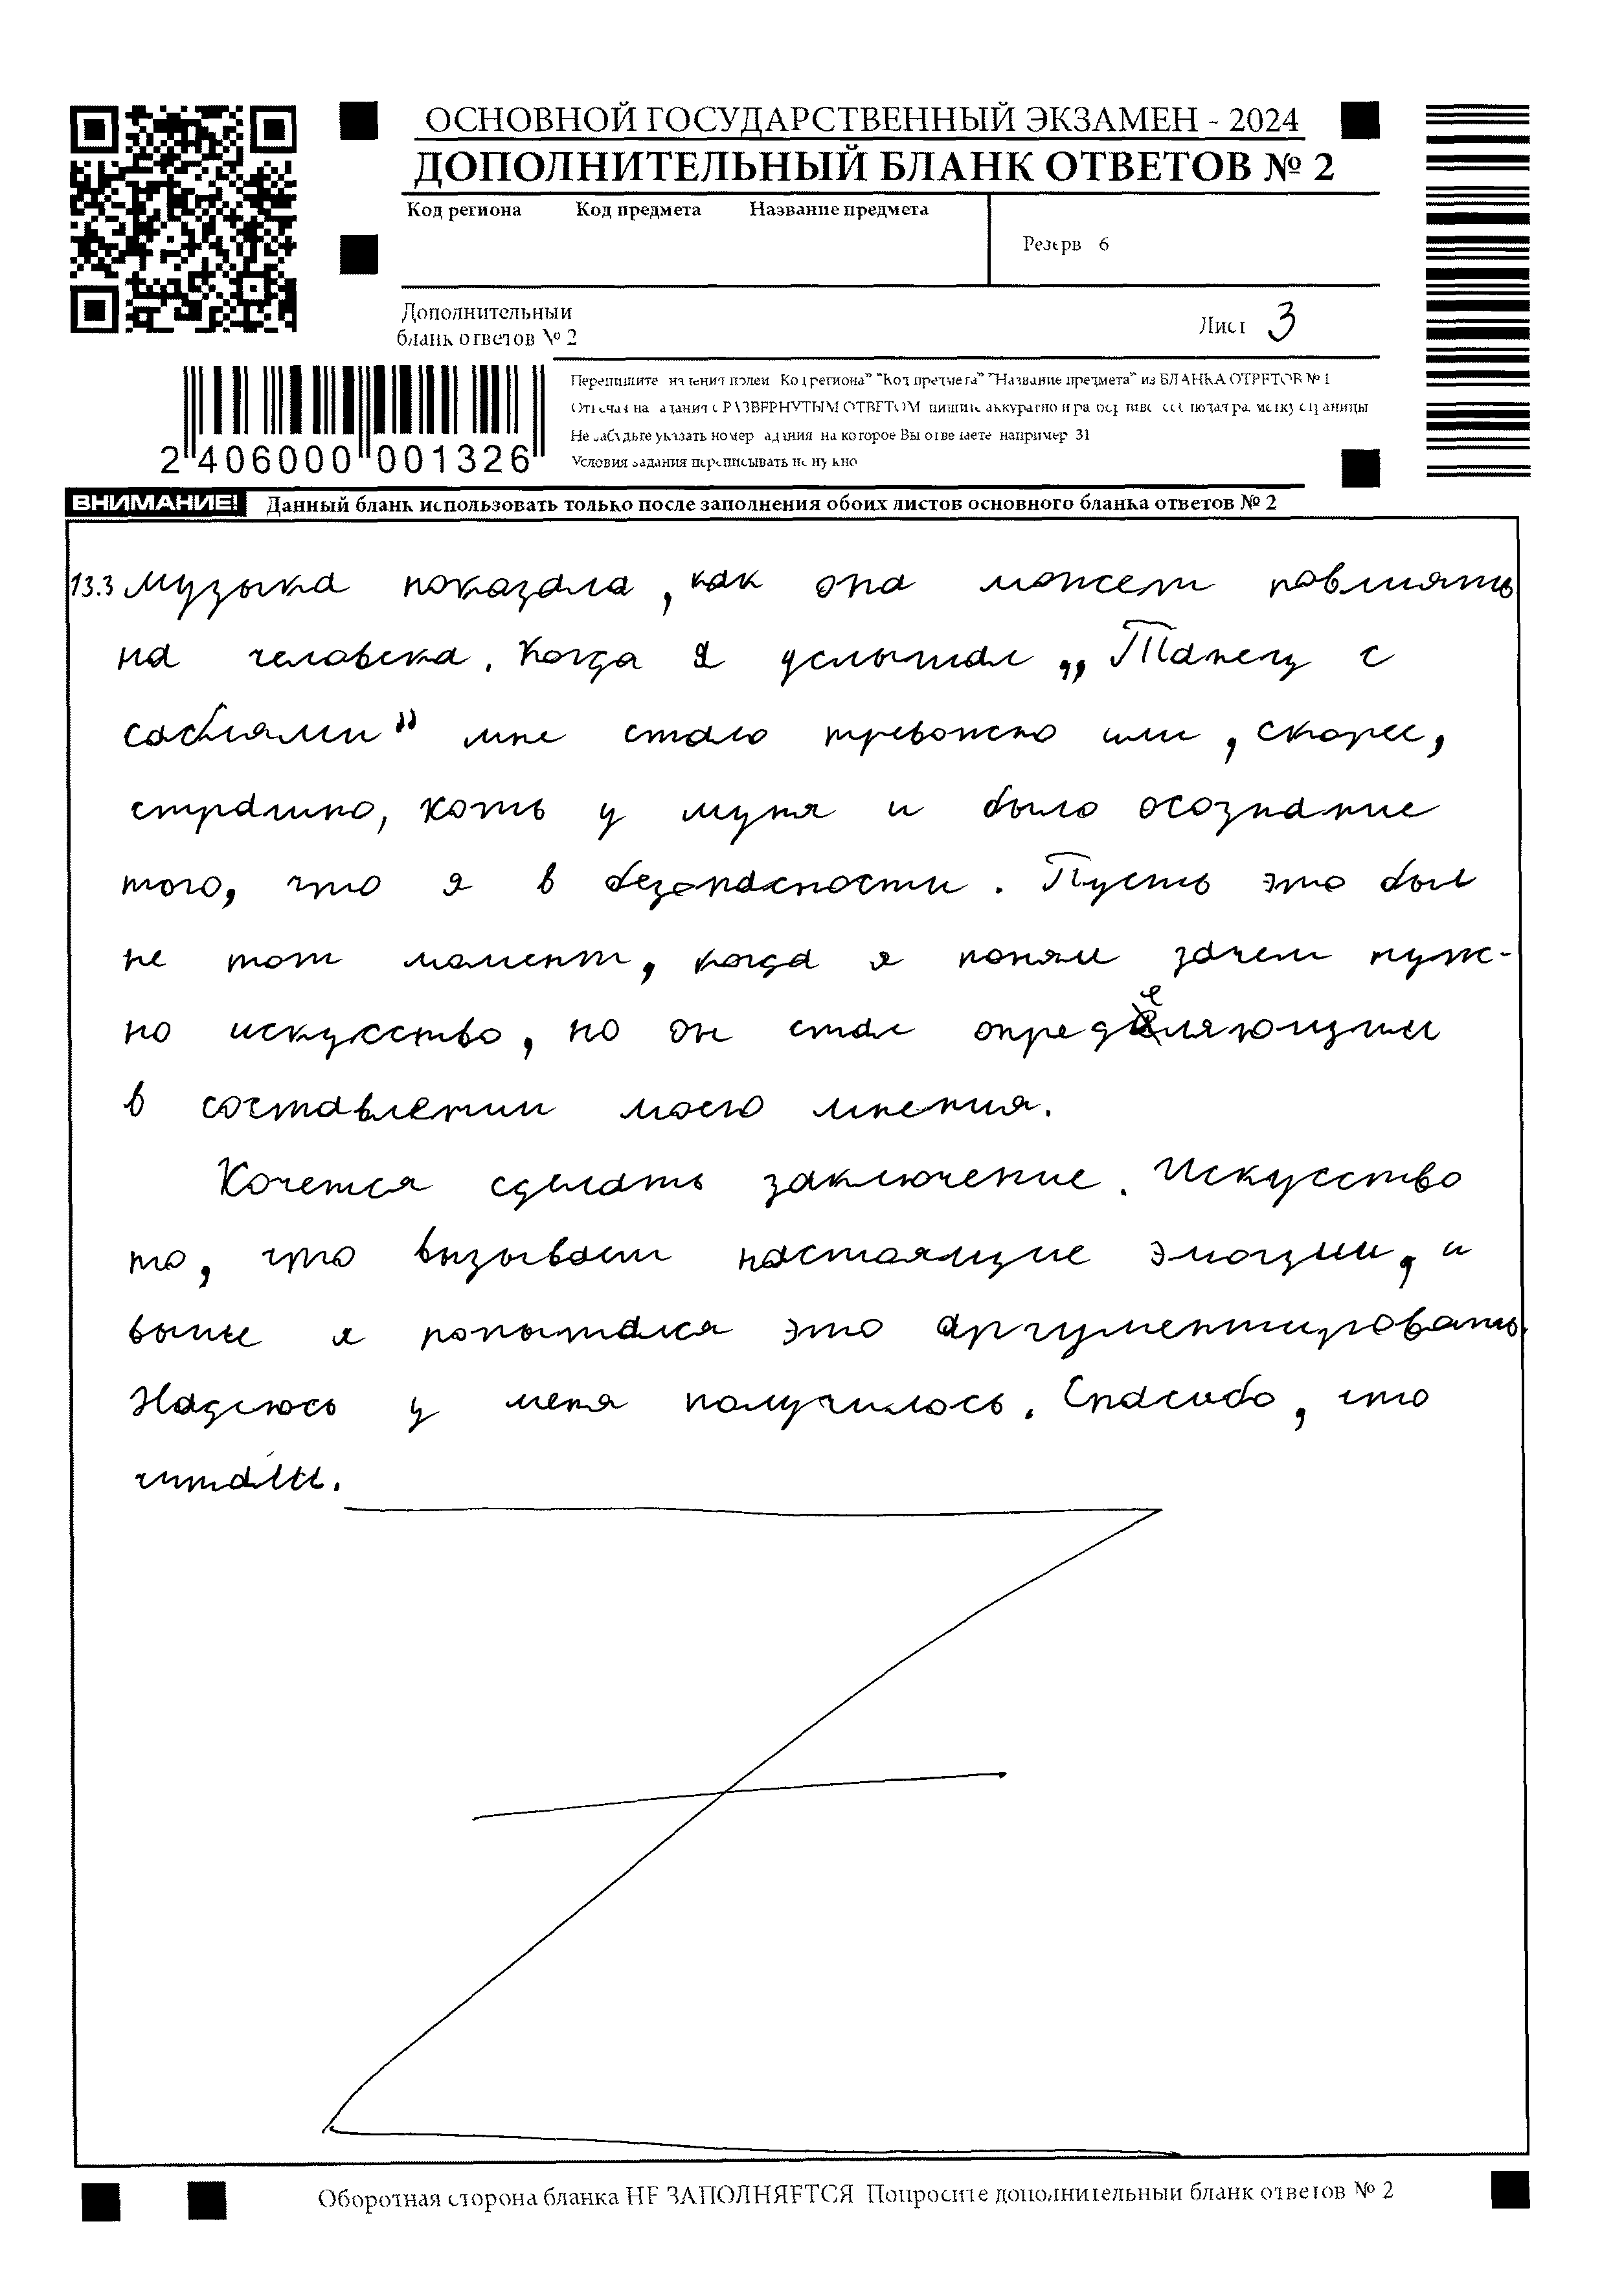 ОСНОВНОЙ ГОСУДАРСТВЕННЫЙ ЭКЗАМЕН - 2024
ДОПОЛНИТЕЛЬНЫЙ БЛАНК ОТВЕТОВ № 2
Код региона Код предмета Название предмета
Резерв 6
Дополнительный
бланк ответов № 2
Лист 3
Перепишите значения полей "Код региона" "Код предмета" "Название предмета" из БЛАНКА ОТВЕТОВ № 1
Отвечая на задания с РАЗВЕРНУТЫМ ОТВЕТОМ пишите аккуратно и разборчиво соблюдая разметку страницы
Не забудьте указать номер задания на которое Вы отвечаете например 31
Условия задания переписывать не нужно
2 406000 001326
ВНИМАНИЕ! Данный бланк использовать только после заполнения обоих листов основного бланка ответов № 2
13.3 Музыка показала, как она может повлиять
на человека. Когда я услышал „Танец с
саблями” мне стало тревожно или, скорее,
страшно, хоть у муня и было осознание
того, что я в безопасности. Пусть это был
не тот момент, когда я понял зачем нуж-
но искусство, но он стал определяющим
в составлении моего мнения.
Хочется сделать заключение. Искусство
то, что вызывает настоящие эмоции, и
выше я попытался это аргументировать.
Надеюсь у меня получилось. Спасибо, что
читали.
Оборотная сторона бланка НЕ ЗАПОЛНЯЕТСЯ Попросите дополнительный бланк ответов № 2